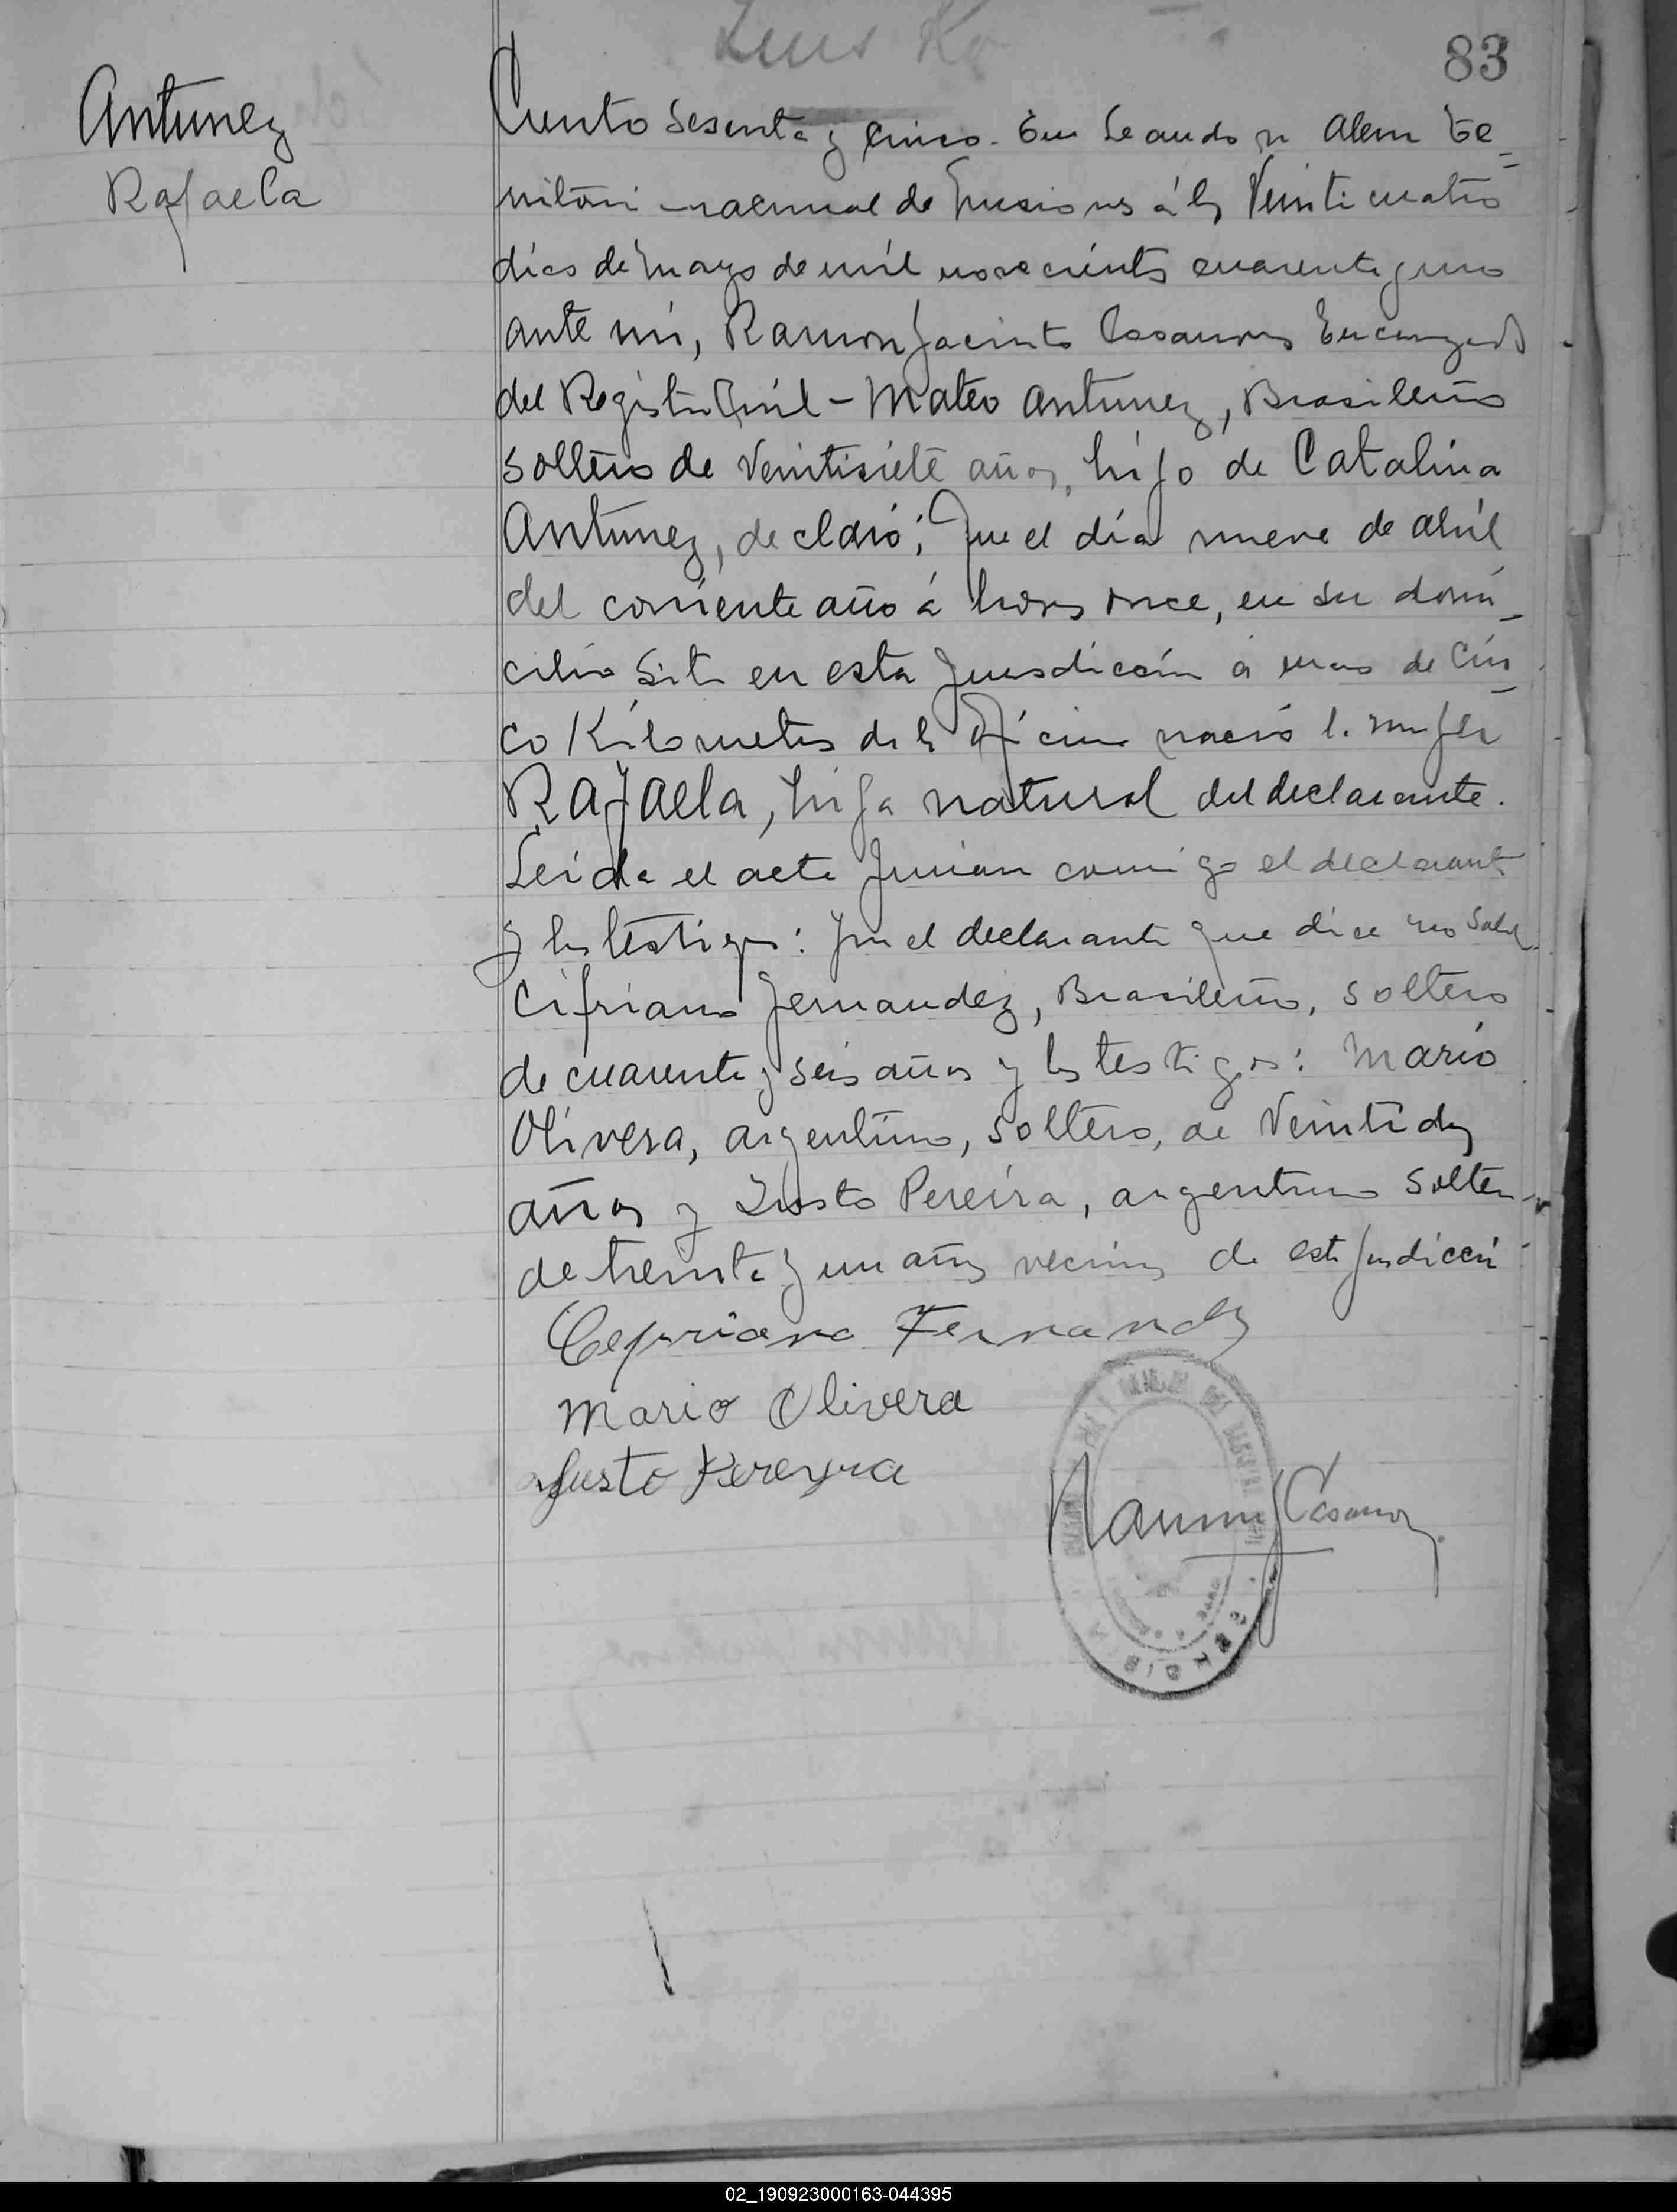 83
Antunez
Rafaela
Ciento Sesenta y Cinco. En Leandro N Alem Te=
rritorio nacional de Misiones á los Veinticuatro
días de Mayo de mil novecientos cuarenta y uno
ante mi, Ramon Jacinto Casanova Encargado
del Registro Civil - Mateo Antunez, Brasileño
soltero de Veintisiete años, hijo de Catalina
Antunez, declaró; Que el día nueve de abril
del corriente año á horas once, en su domi_
cilio sito en esta Jurisdicción á mas de Cin_
co Kilometros de la Oficina nació la mujer
Rafaela, hija natural del declarante.
Leida el acta firman conmigo el declarante
y los testigos: por el declarante que dice no Saber
Cipriano Fernandez, Brasileño, soltero
de cuarenta y seis años y los testigos: Mario
Olivera, argentino, soltero, de Veintidos
años y Justo Pereira, argentino Soltero
de treinta y un años vecinos de esta Jurisdicción
Cepriano Fernandez
Mario Olivera
Justo Pereyra
Ramon J Casanova
02_190923000163-044395